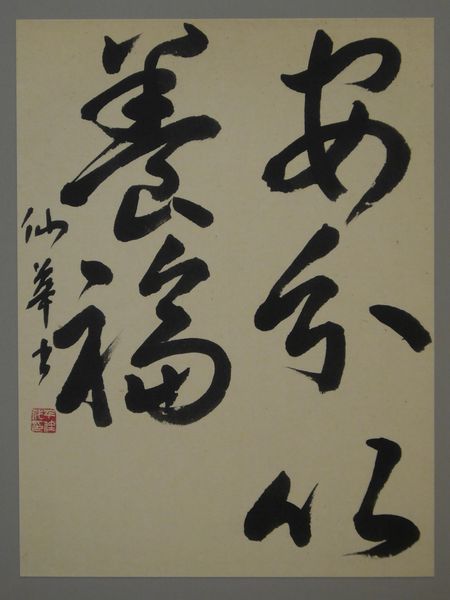 安分以
養福
仙華書